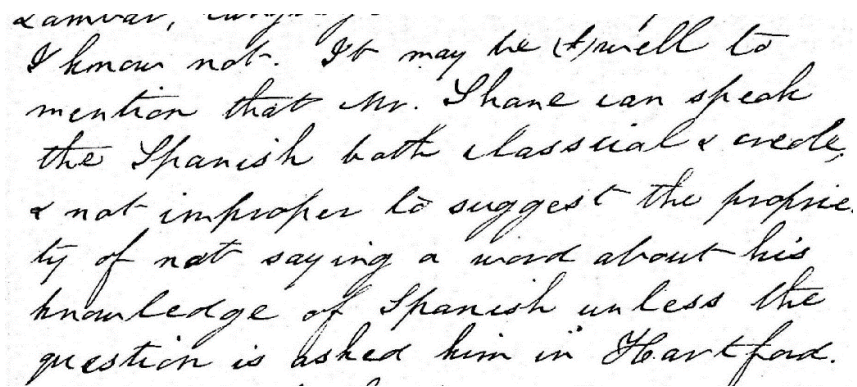 I know not. It may be (t) well to
mention that Mr. Shane can speak
the Spanish both classical & creole,
& not improper to suggest the proprie-
ty of not saying a word about his
knowledge of Spanish unless the
question is asked him in Hartford.